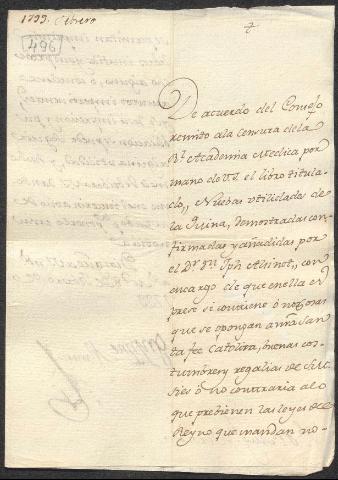 1799. Febrero
496
De acuerdo del Consejo
remito a la censura de la
Rl. Academia Medica por
mano de V.S. el libro titula-
do, Nuebas utilidades de
la Quina, demostradas con-
firmadas y añadidas por
el Dr. Dn. Jph Alsinet, con
encargo de que en ella ex-
prese si contiene ó no cosas
que se opongan a nra San-
ta fee Catolica, buenas cos-
tumbres y regalias de S.M.
si es ó no contraria a lo
que prebienen las leyes del
Reyno que mandan no-